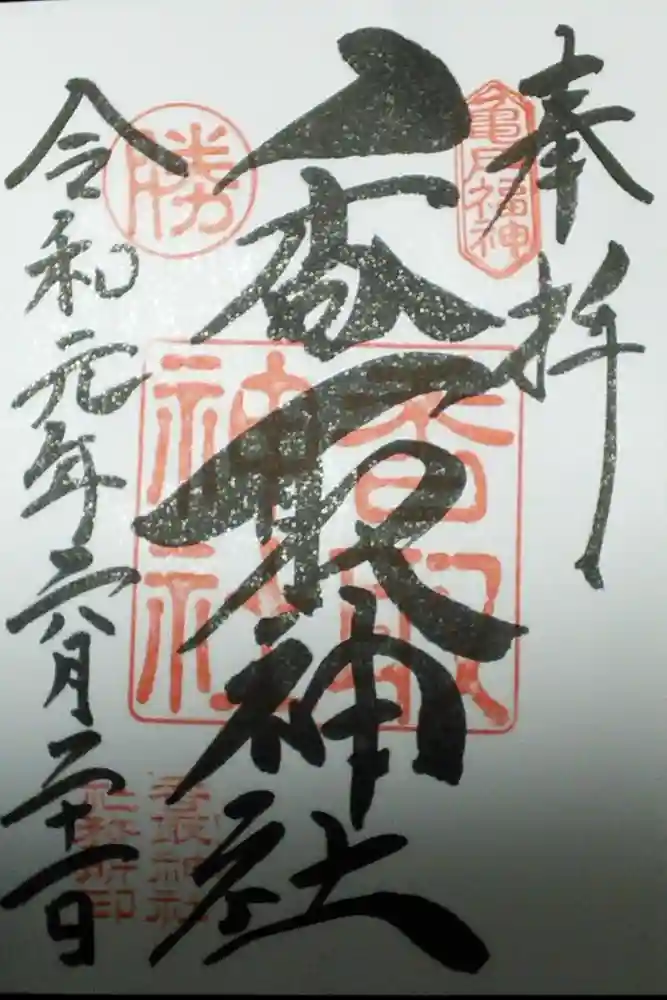 奉拝
亀戸福神
香取神社
香取神社
勝
令和元年六月二十一日
香取神社
社務所印